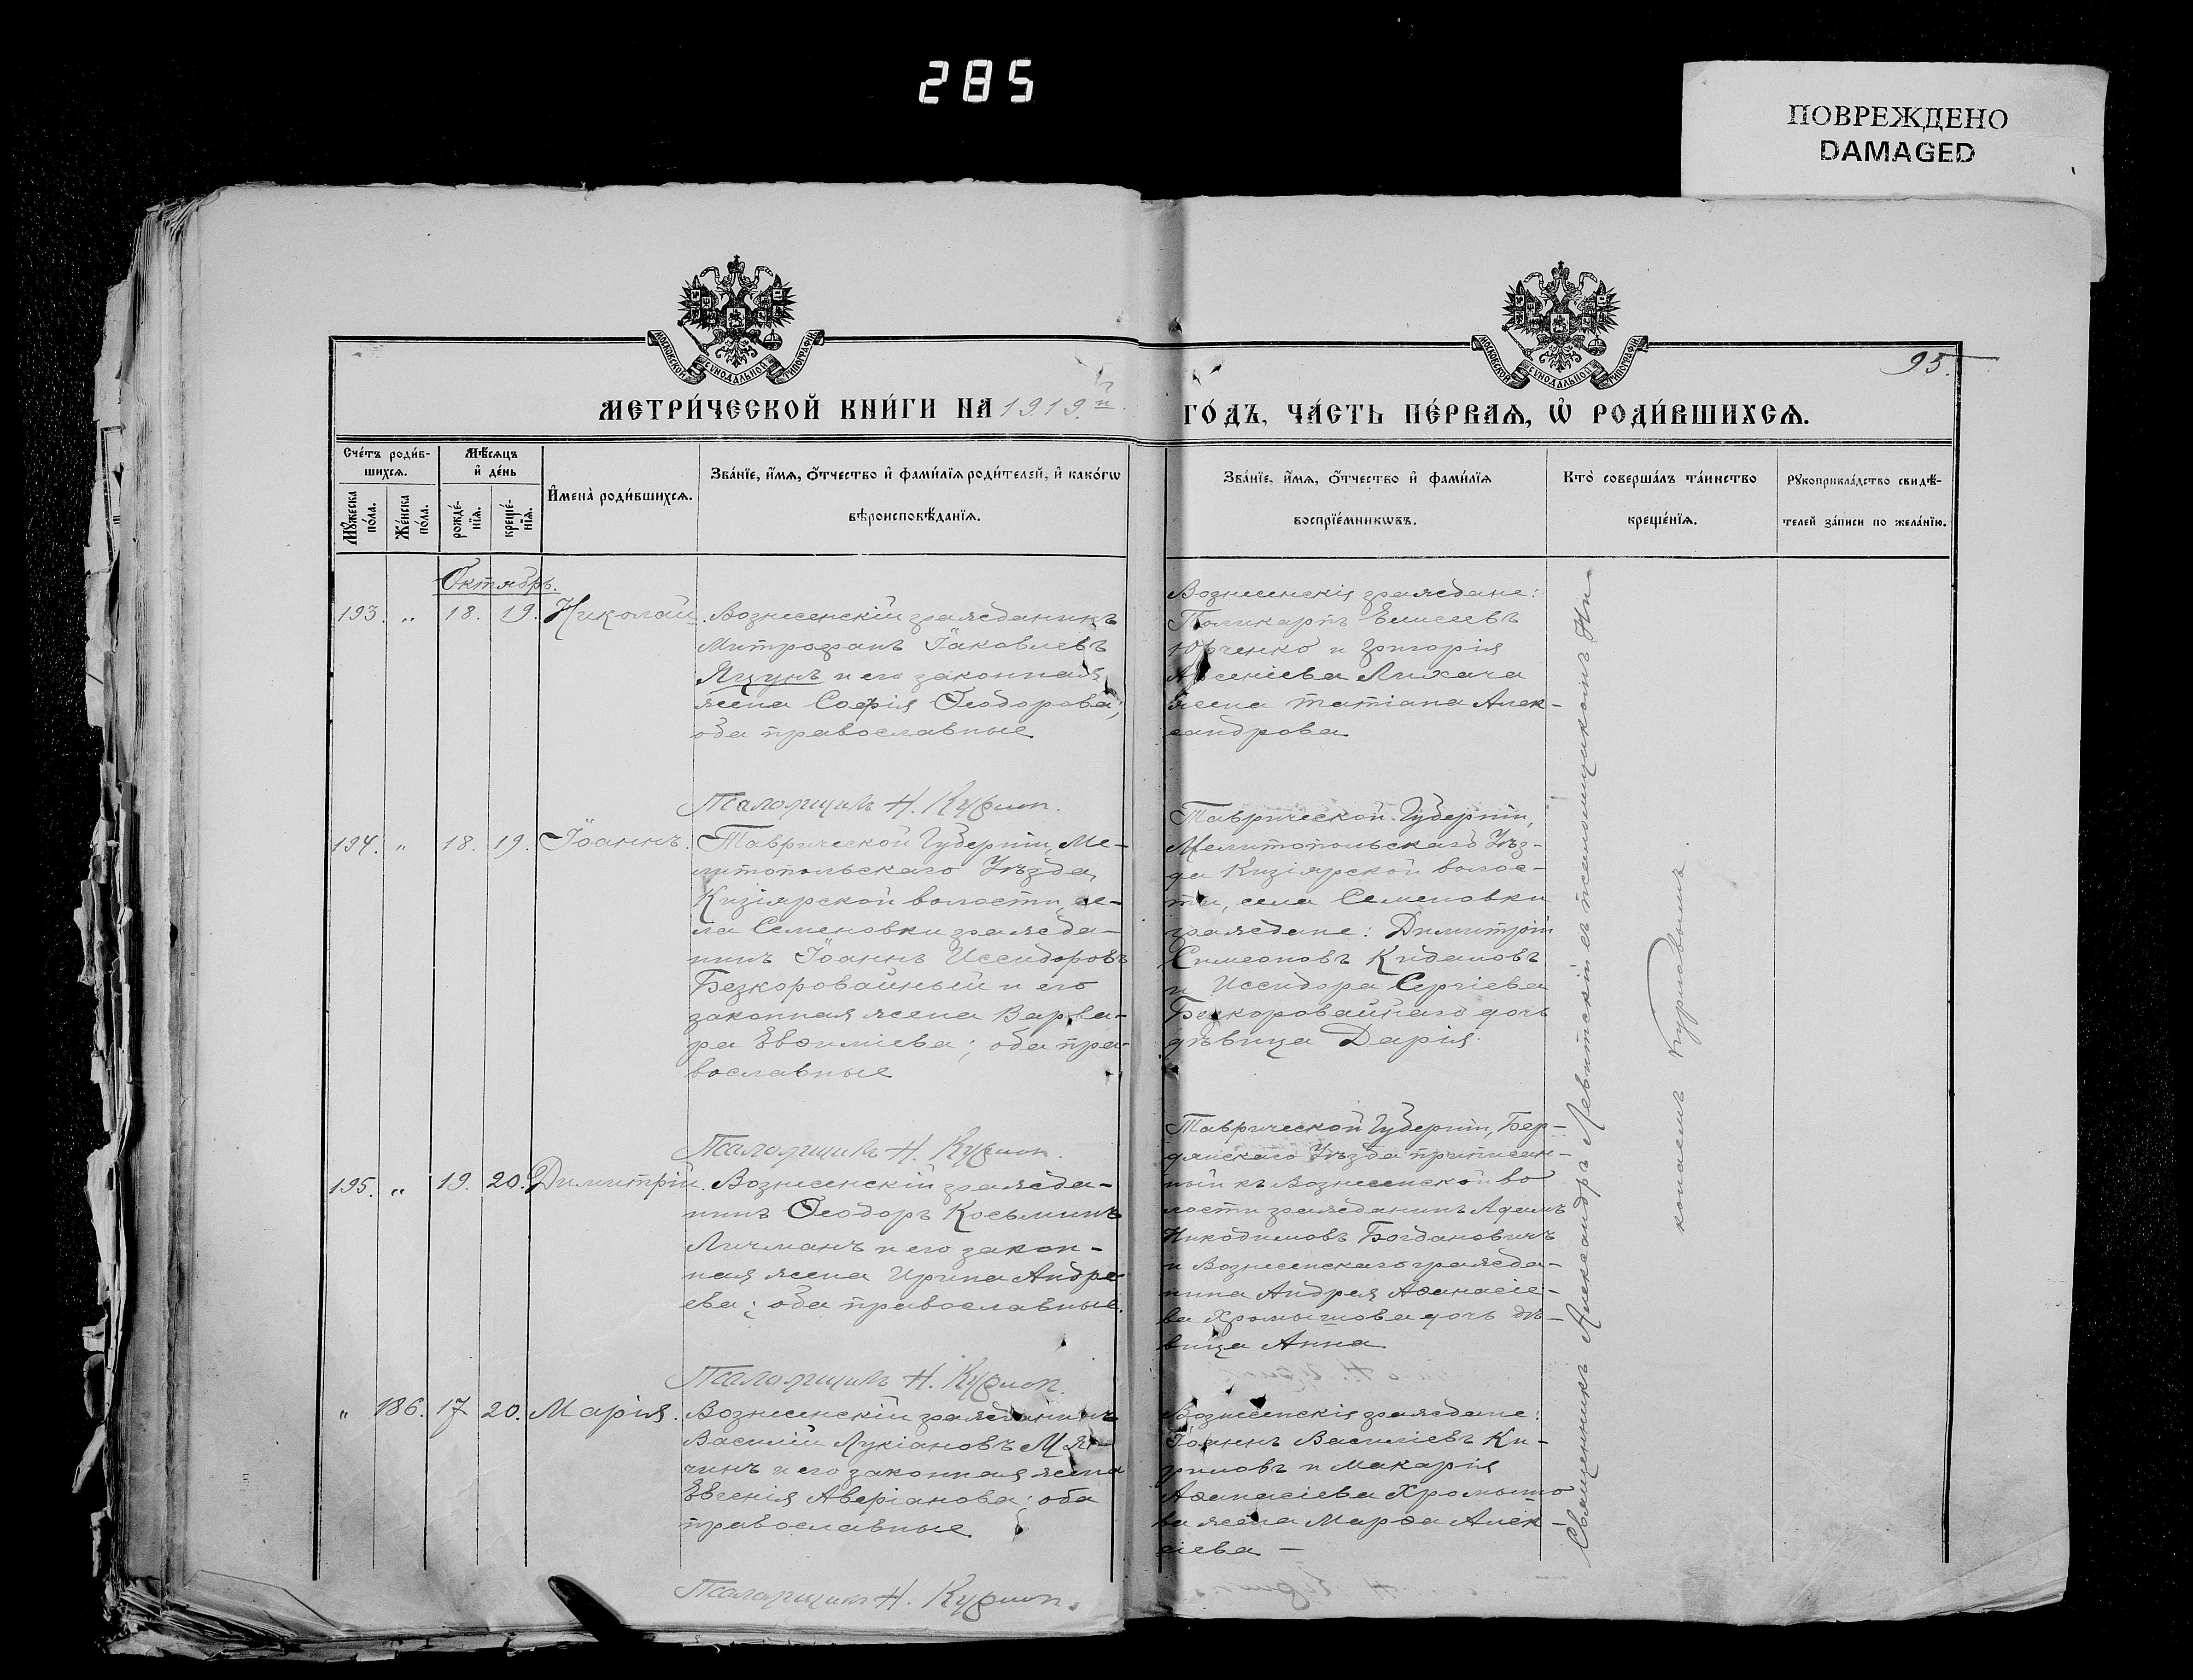 285
ПОВРЕЖДЕНО
DAMAGED
МОСКОВСКОЙ СѴНОДАЛЬНОЙ ТИПОГРАФІИ
МОСКОВСКОЙ СѴНОДАЛЬНОЙ ТИПОГРАФІИ
95.
МЕТРИ́ЧЕСКОЙ КНИ́ГИ НА 1919 й
ГО́ДЪ, ЧА́СТЬ ПЕ́РВАѦ, Ѡ҆ РОДИ́ВШИХСѦ.
Сче́тъ роди́в-
шихсѧ.
Мꙋ́жеска по́ла.
Же́нска по́ла.
Мѣ́сѧцъ
и҆ де́нь
рожде́-
нїѧ.
креще́-
нїѧ.
И҆мена̀ роди́вшихсѧ.
Зва́нїе, и҆́мѧ, ѻ҆́тчество и҆ фами́лїѧ роди́телей, и҆ како́гѡ
вѣроисповѣ́данїѧ.
Зва́нїе, и҆́мѧ, ѻ҆́тчество и҆ фами́лїѧ
воспрїе́мникѡвъ.
Кто̀ соверша́лъ та́инство
креще́нїѧ.
Рꙋкоприкла́дство свидѣ́-
телей за́писи по жела́нїю.
Октябрь.
193. „ 18. 19. Николай.
Вознесенскій гражданинъ
Митрофанъ Іаковлевъ
Яцунъ и его законная
жена Софія Ѳеодорова;
оба православные
Псаломщикъ Н.
Вознесенскія граждане:
Поликарпъ Елисеевъ
Юрченко и Григорія
Арсеніева Лихача
жена Татіана Алек-
сандрова
194. „ 18. 19. Іоаннъ.
Таврической Губерніи, Ме-
литопольскаго Уѣзда,
Кизіярской волости, се-
ла Семеновки гражда-
нинъ Іоаннъ Исидоровъ
Безкоровайный и его
законная жена Варва-
ра Евѳиміева; оба пра-
вославные
Псаломщикъ Н.
Таврической Губерніи,
Мелитопольскаго Уѣз-
да Кизіярской волос-
ти, села Семеновки
граждане: Димитрій
Симеоновъ Кидаловъ
и Иссидора Сергіева
Безкоровайнаго дочь
дѣвица Дарія.
195. „ 19. 20. Димитрій.
Вознесенскій гражда-
нинъ Ѳеодоръ Косьминъ
Личманъ и его закон-
ная жена Ирина Андре
ева; оба православные.
Псаломщикъ Н.
Таврической Губерніи, Бер-
дянскаго Уѣзда приписан-
ный къ Вознесенской во
лости гражданинъ Адамъ
Никодимовъ Богдановичъ
и Вознесенскаго гражда-
нина Андрея Аѳанасіе-
ва Хромышова дочь дѣ-
вица Анна
„ 186. 17 20. Марія.
Вознесенскій гражданинъ
Василій Лукіановъ Мя-
чинъ и его законная жена
Евгенія Аверіанова; оба
православные
Псаломщикъ Н.
Вознесенскія граждане:
Іоаннъ Василіевъ Ки-
риловъ и Макарія
Аѳанасіева Хромышо
ва жена Марѳа Алек-
сіева —
Священникъ Александръ Левитскій съ псаломщикомъ Ни-
колаемъ